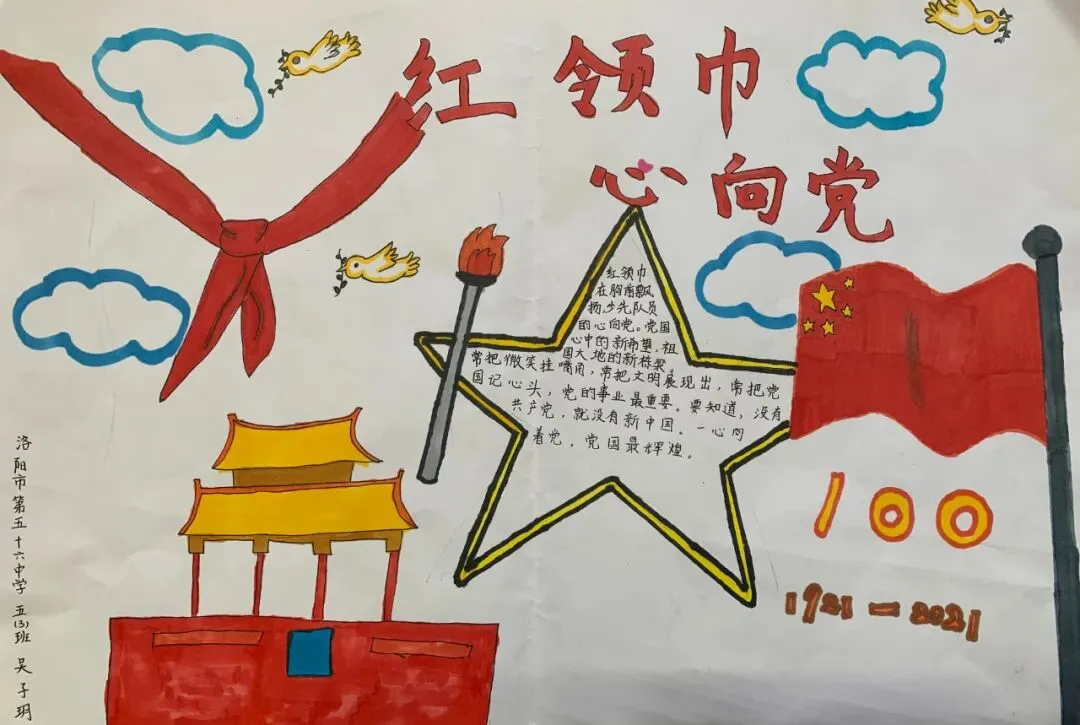 红领巾
心向党
红领巾
在胸前飘
扬,少先队员
的心向党。党国
心中的新希望,祖
国大地的新栋梁。
常把微笑挂嘴角,常把文明展现出,常把党
国记心头,党的事业最重要。要知道,没有
共产党,就没有新中国。一心向
着党,党国最辉煌。
100
1921—2021
洛阳市第五十六中学 五(3)班 吴子玥